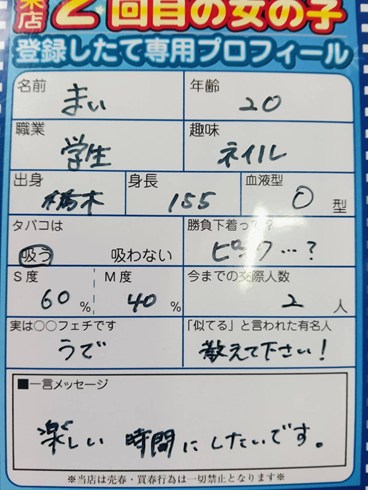 来店2回目の女の子
登録したて専用プロフィール
名前 まい 年齢 20
職業 学生 趣味 ネイル
出身 橋木 身長 155 血液型 O 型
タバコは 吸う 吸わない 勝負下着って? ピンク…?
S度 60% M度 40% 今までの交際人数 2人
実は○○フェチです うで 「似てる」と言われた有名人 教えて下さい!
■一言メッセージ
楽しい時間にしたいです。
※当店は売春・買春行為は一切禁止となります※